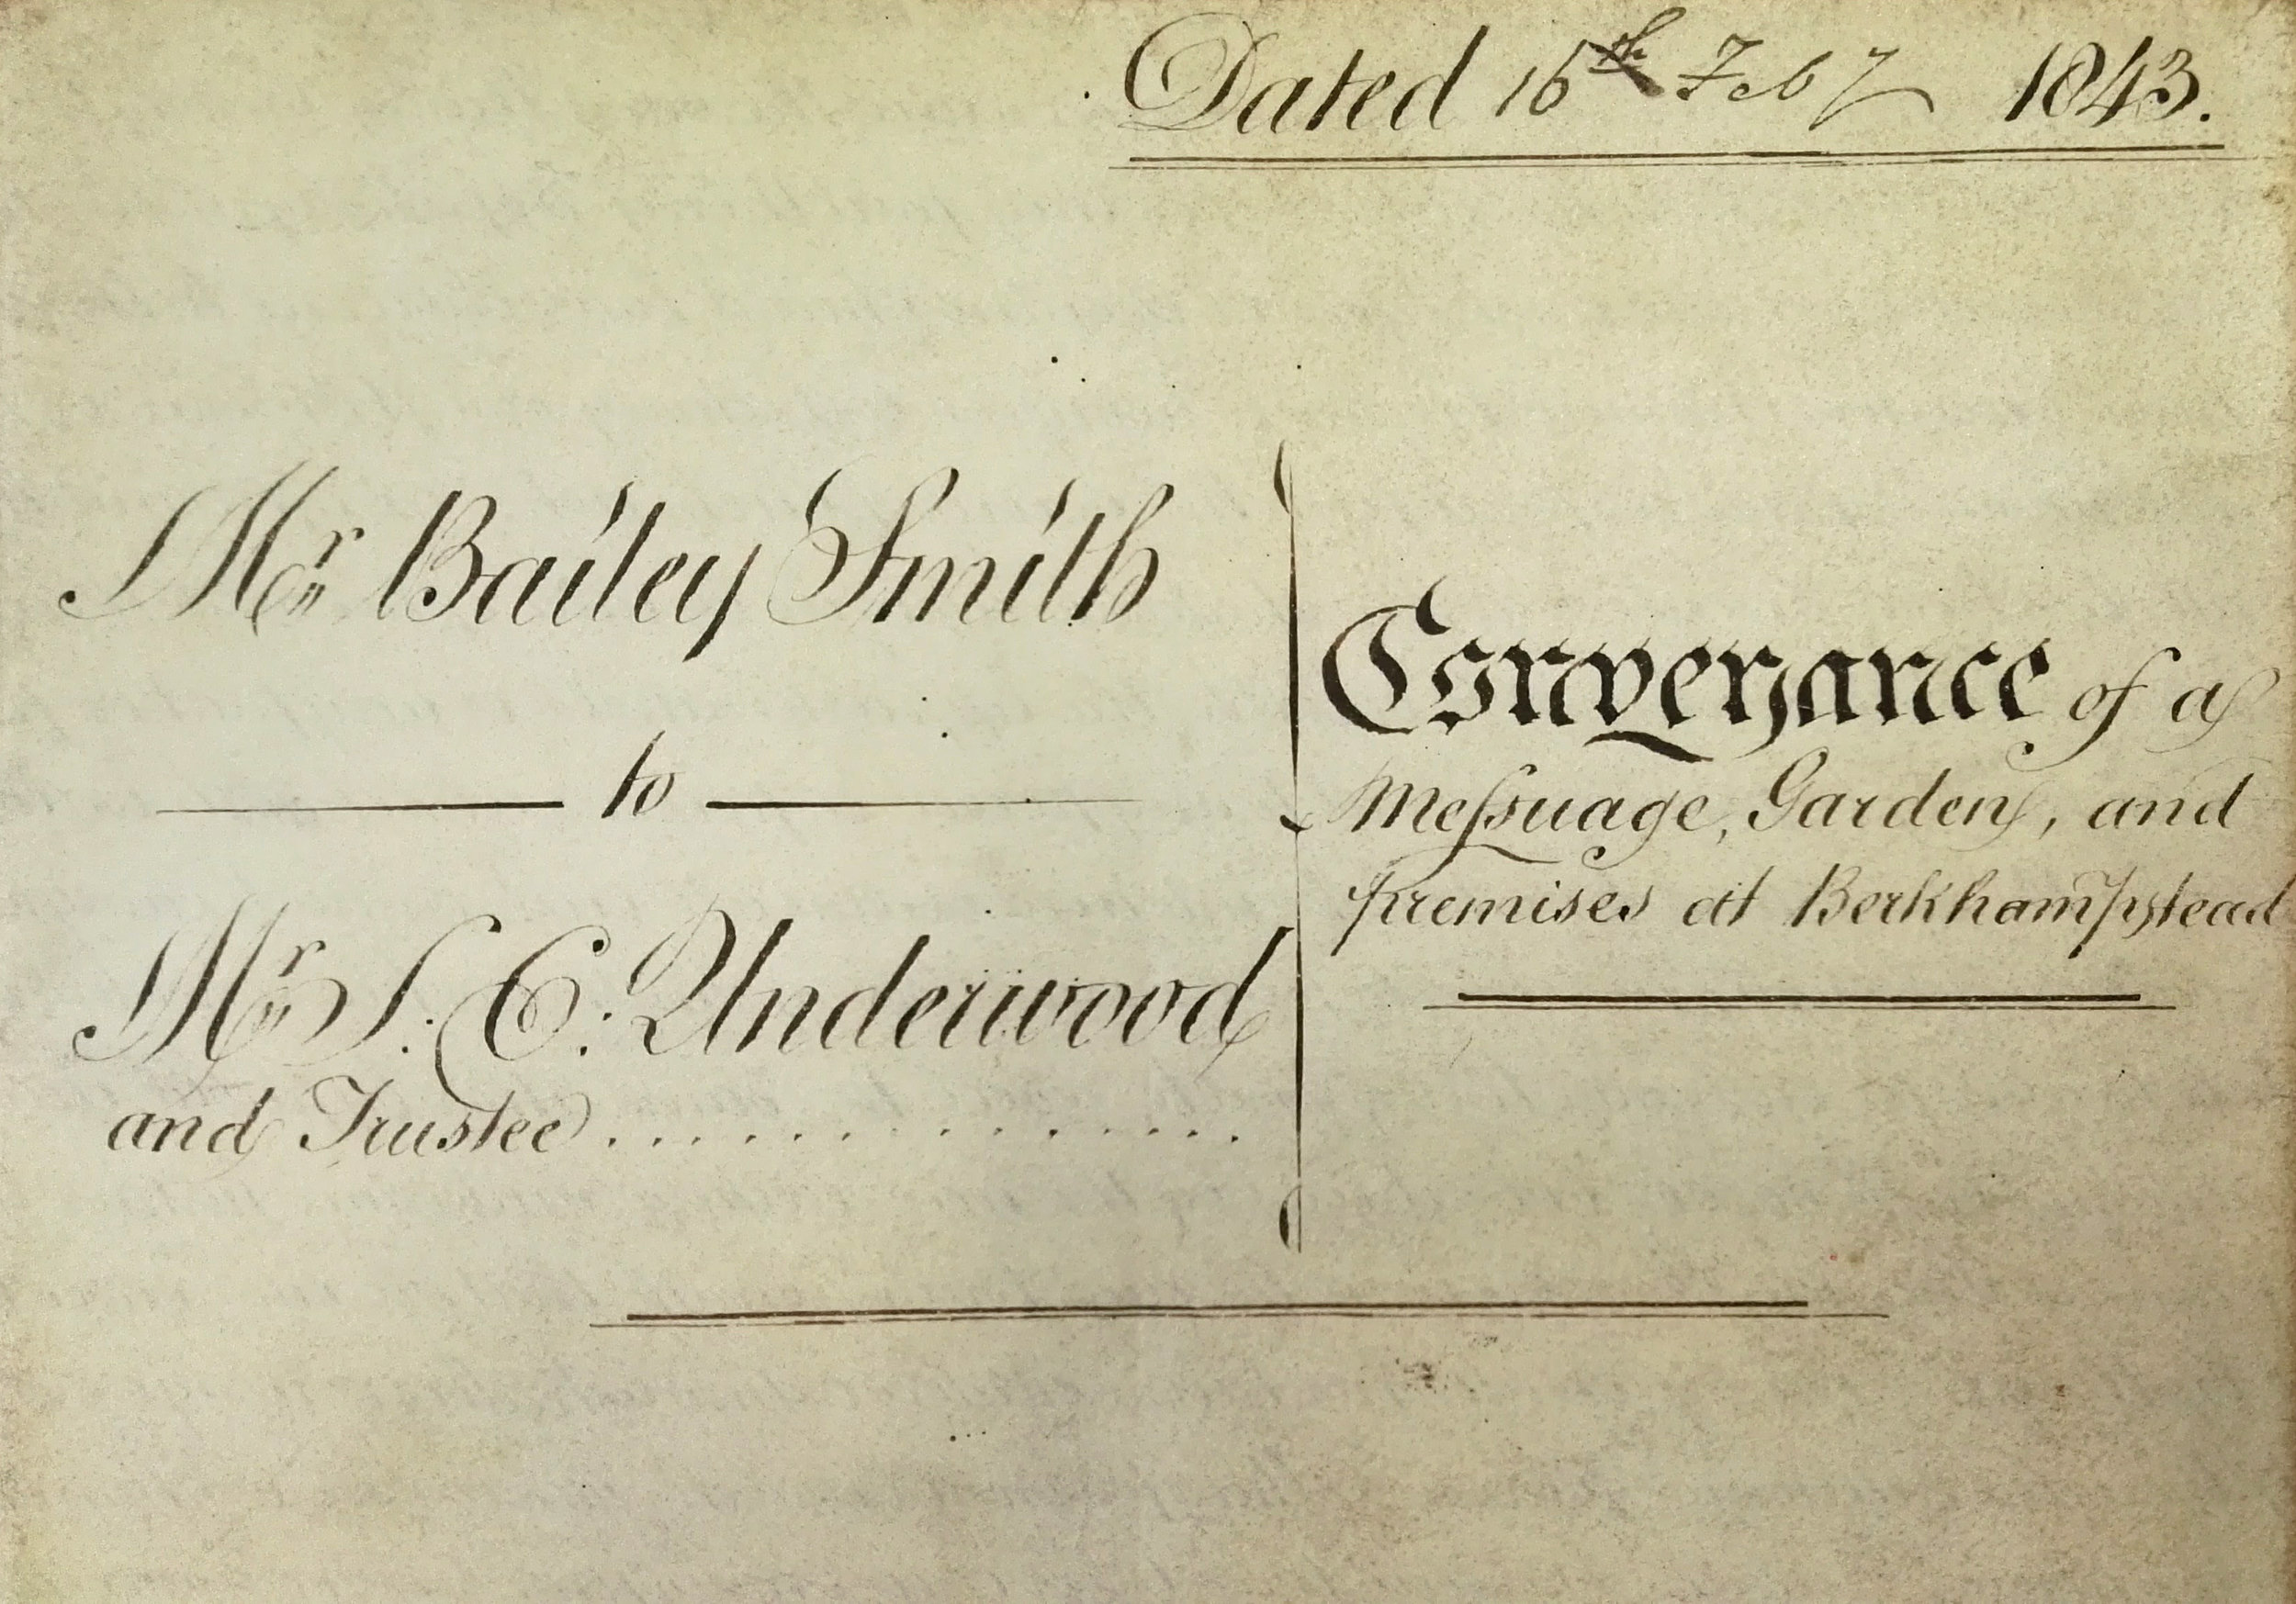 Dated 16th Feby 1843.
Mr Bailey Smith
to
Mr S. E. Underwood
and Trustee...............
Conveyance of a
Meſsuage, Garden, and
premises at Berkhampstead